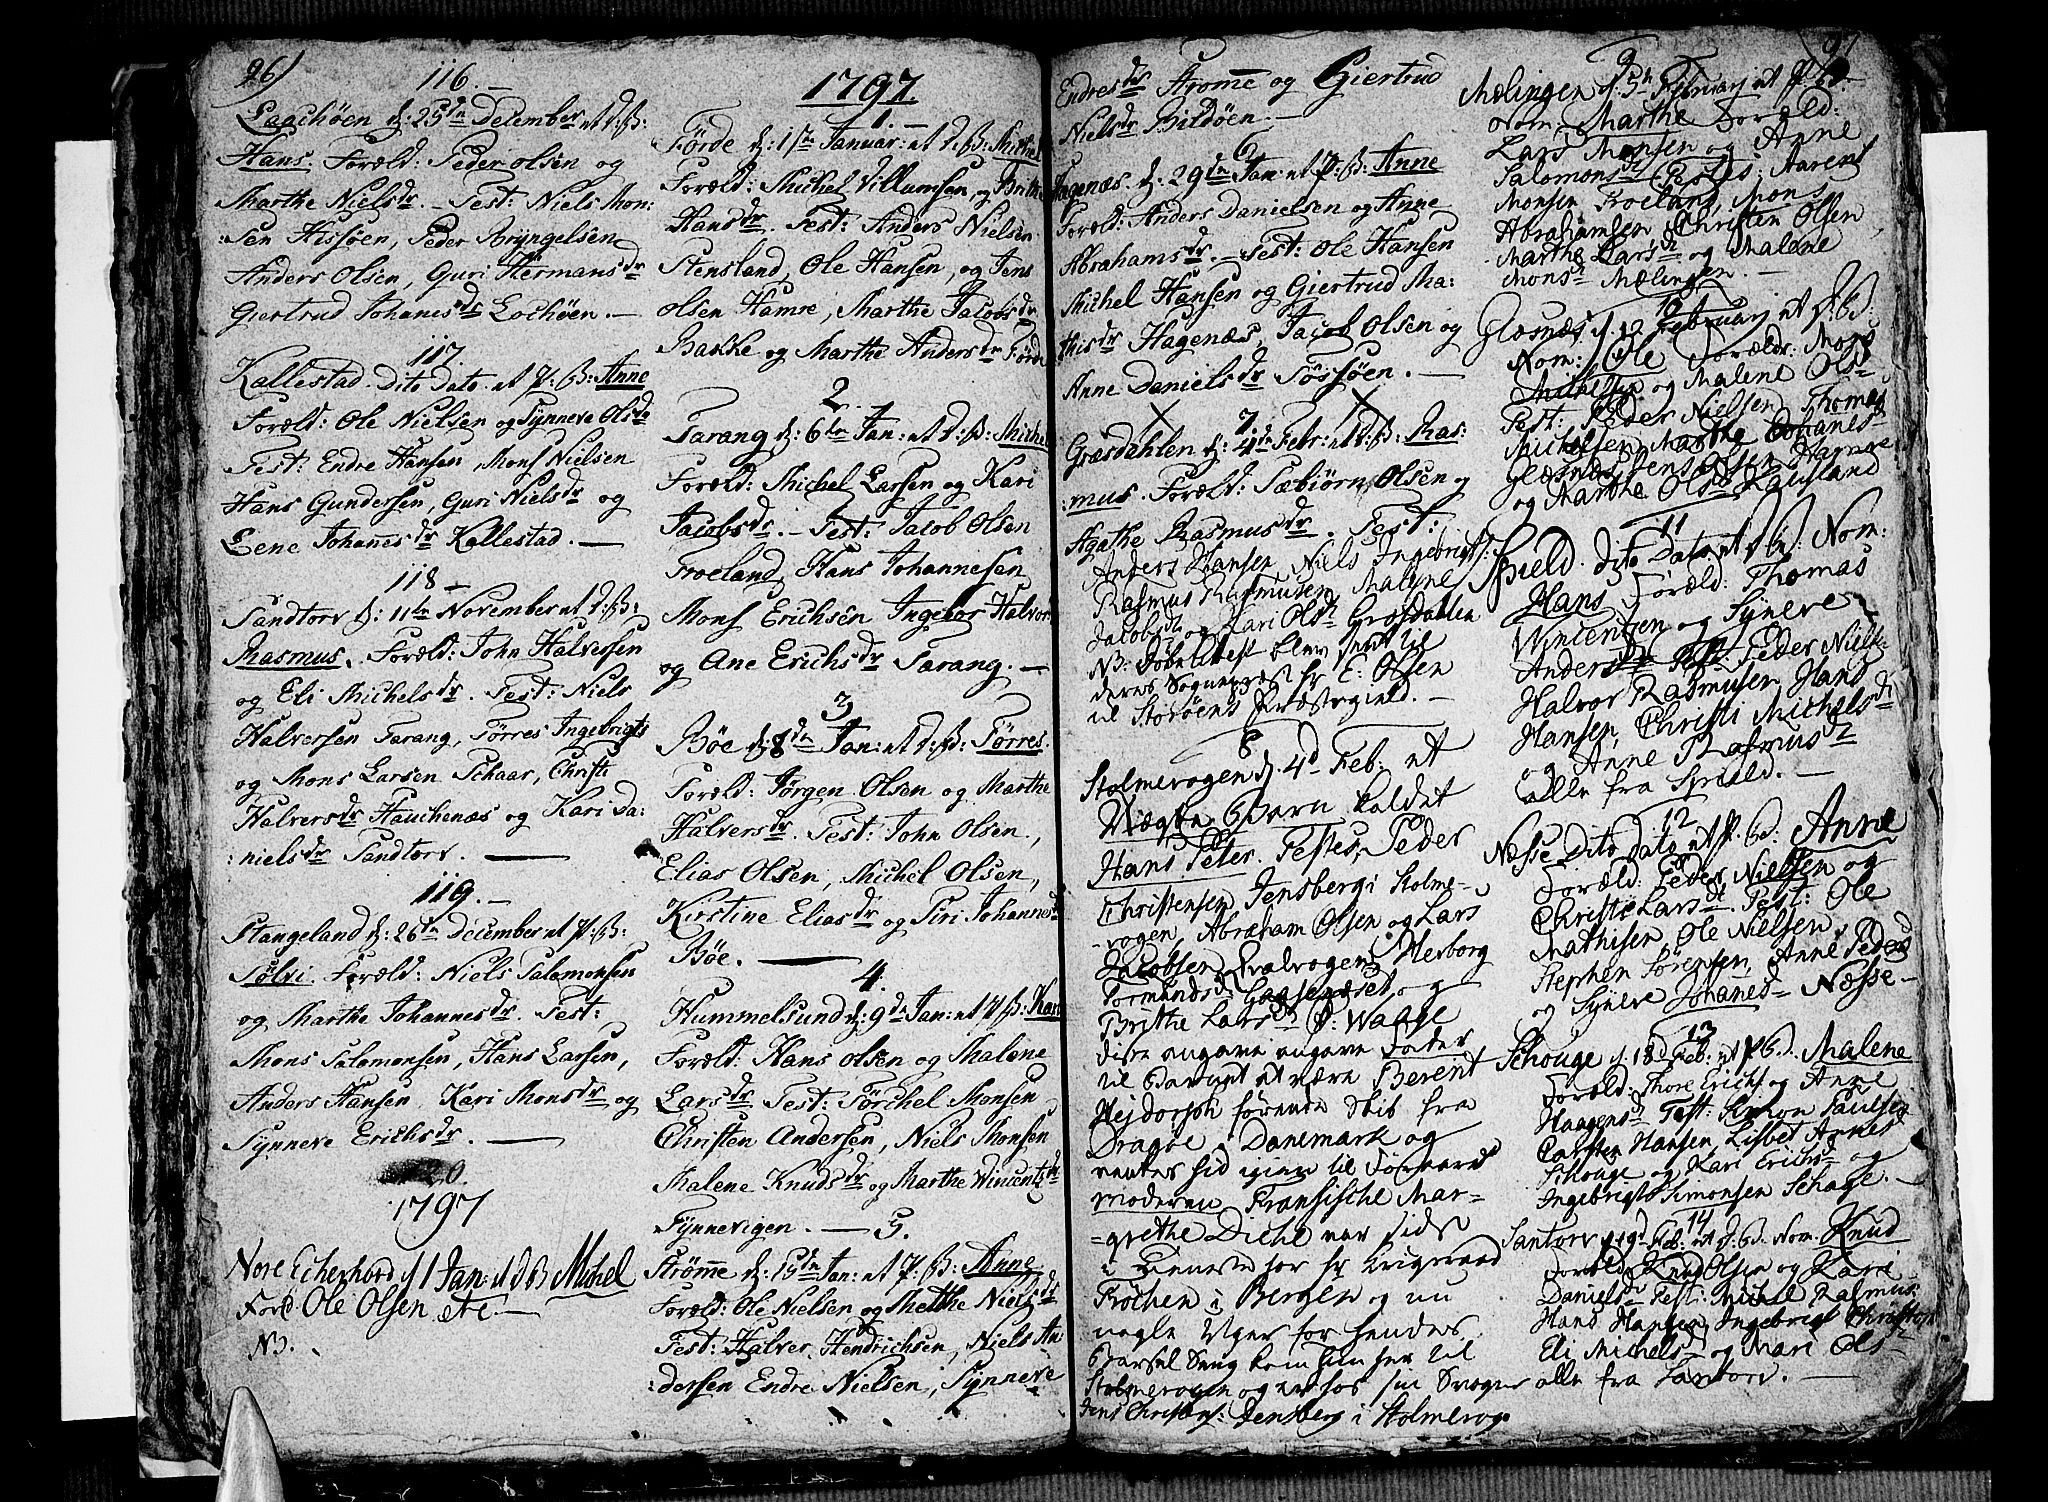 96)
116.
Laachöen d: 25de December et D: B:
Hans. Foræld: Peder Olsen og
Marthe Nielsdr. – Test: Niels Mon:
:sen Hissöen, Peder Bryngelsen
Anders Olsen, Guri Hermansdr
Giertrud Johanesdr Lochöen. –
117
Kallestad. Dito Dato. et P: B: Anne
Foræld: Ole Nielsen og Synneve Olsdr
Test: Endre Hansen, Mons Nielsen
Hans Gundersen, Guri Nielsdr og
Lene Johannesdr Kallestad. –
118 –
Sandtorv d: 11te November et D: B:
Rasmus. Foræld: John Halversen
og Eli Michelsdr. Test: Niels
Halversen Tarang, Törres Ingebrigts
og Mons Larsen Schaar, Christi
Halversdr Hauchenæs og Kari Da:
:nielsdr Sandtorv. –
119. –
Stangeland d: 26de December et P: B:
Sölvi. Foræld: Niels Salomonsen
og Marthe Johannesdr. Test:
Mons Salomonsen, Hans Larsen,
Anders Hansen, Kari Monsdr og
Synneve Erichsdr. –
120.
1797
Nore Echerhovd d 1 Jan: et D B Michel
Foræld Ole Olsen etc –
NB.
1797.
1. –
Förde d: 1ste Januar: et D: B: Michel
Foræld: Michel Villumsen og Brithe
Hansdr. Test: Anders Nielsen
Stensland, Ole Hansen, og Jens
Olsen Hamre, Marthe Jacobsdr
Bakke og Marthe Andersdr Förde
2.
Tarang d: 6te Jan: et D: B: Michel
Foræld: Michel Larsen og Kari
Jacobsdr. – Test: Jacob Olsen
Froeland, Hans Johannesen
Mons Erichsen Ingebor Halvors
og Ane Erichsdr Tarang. –
3
Böe d: 8de Jan: et D: B: Törres.
Foræld: Jörgen Olsen og Marthe
Halversdr. Test: John Olsen,
Elias Olsen, Michel Olsen,
Kirstine Eliasdr og Siri Johannesdr
Böe. –
4.
Hummelsund d: 9de Jan: et P: B: Kari
Foræld: Hans Olsen og Malene
Larsdr Test: Törchel Monsen
Christen Andersen, Niels Monsen
Malene Knudsdr og Marthe Wincentsdr
Synnevigen. –
5.
Strömme d: 15de Jan: et P: B: Anne
Foræld: Ole Nielsen og Methe Nielsdr
Test: Halver Hendrichsen, Niels An:
:dersen Endre Nielsen, Synneve
Endresdr Strome og Giertrud
Nielsdr Bildöen. –
6
Hagenæs. d: 29de Jan: et P: B: Anne
Foræld: Anders Danielsen og Anne
Abrahamsdr. – Test: Ole Hansen
Michel Hansen og Giertrud Ma:
thisdr Hagenæs, Jacob Olsen og
Anne Danielsdr Sössöen. –
7.
Græsdahlen d: 4de Febr: et D: B: Ras:
:mus. Foræld: Sæbiörn Olsen og
Agathe Rasmusdr. Test:
Anders Hansen, Niels Ingebrigts:
Rasmus Rasmusen, Malene
Jacobsdr og Kari Olsdr Græsdahlen
NB: Döbe attest blev sendt til
deres Sognepræst hr E: Olsen
til Storöens Præstegield. –
8
Stolmevogen d. 4d Feb: et
Uægte Barn kaldet
Hans Peter. Testes, Peder
Christensen Jensberg i Stolme-
-vogen, Abraham Olsen og Lars
Jacobsen Qvalvogen, Herborg
Tormundsd. Gaasenæset, og
Brithe Larsdr P: Waage
til Barnet at være Berent
Hejdorson förende Skib fra
Dragöe i Danemark og
moderen Fransische Mar-
-grethe Diehl var sidst
i Tieneste hos hr Krigsraad
Fröchen i Bergen og nu
nogle Uger for hendes
Barsel Seng kom hun her til
Stolmevogen og er hos sin Svoger
Jens Christens: Jensberg i Stolmevog
97
9
Mælingen d. 5te Februarj et P: B:
Nom: Marthe Foræld:
Lars Monsen og Anne
Salomonsdr Testes: Aarent
Monsen Froeland, Mons
Abrahamsen, Christen Olsen,
Marthe Larsdr og Malene
Monsdr Mælingen. –
10
Glæsnæs d. 12 Februarj et D: B:
Nom: Ole Foræld: Mons
Michelsen og Malene Olsdr
Test: Peder Nielsen, Thomas
Michelsen, Marthe Johanes-
Glæsnæs, Jens Olsen Hamre
og Marthe Olsdr Kausland
11
Spield. Dito Dato et D: B: Nom:
Hans Foræld: Thomas
Wincentsen og Syneve
Andersdr Test: Peder Niels-
Halvor Rasmusen, Hans
Hansen, Christi Michelsdr
og Anne Rasmusdr
alle fra Spield. –
12
Næsse Dito Dato et P. B. Anne
Foræld: Peder Nielsen og
Christi Larsdr. Test: Ole
Mathisen, Ole Nielsen,
Stephen Sörensen, Anne Pedersd
og Syneve Johanesd– Næsse –
13
Schouge d 18d Feb: et P. B. Malene
Foræld: Thore Erichs og Anne
Haagensd Test: Simon Paulsen
Carsten Hansen, Lisbet Arnes
Schouge og Kari Erichs– og
Ingebrigt Simonsen Schoge. –
14
Santorv d 19d Feb: et D. B. Nom. Knud
Foræld: Knud Olsen og Kari
Danielsdr Test: Michel Rasmus:
Hans Hansen, Ingebrigt Christens
Eli Michels– og Mari Ols–
alle fra Santorv. –